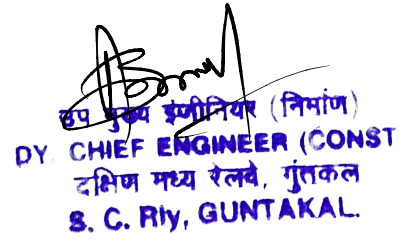 उप मुख्य इंजीनियर (निर्माण)
DY. CHIEF ENGINEER (CONST
दक्षिण मध्य रेलवे, गुंतकल
S. C. Rly, GUNTAKAL.